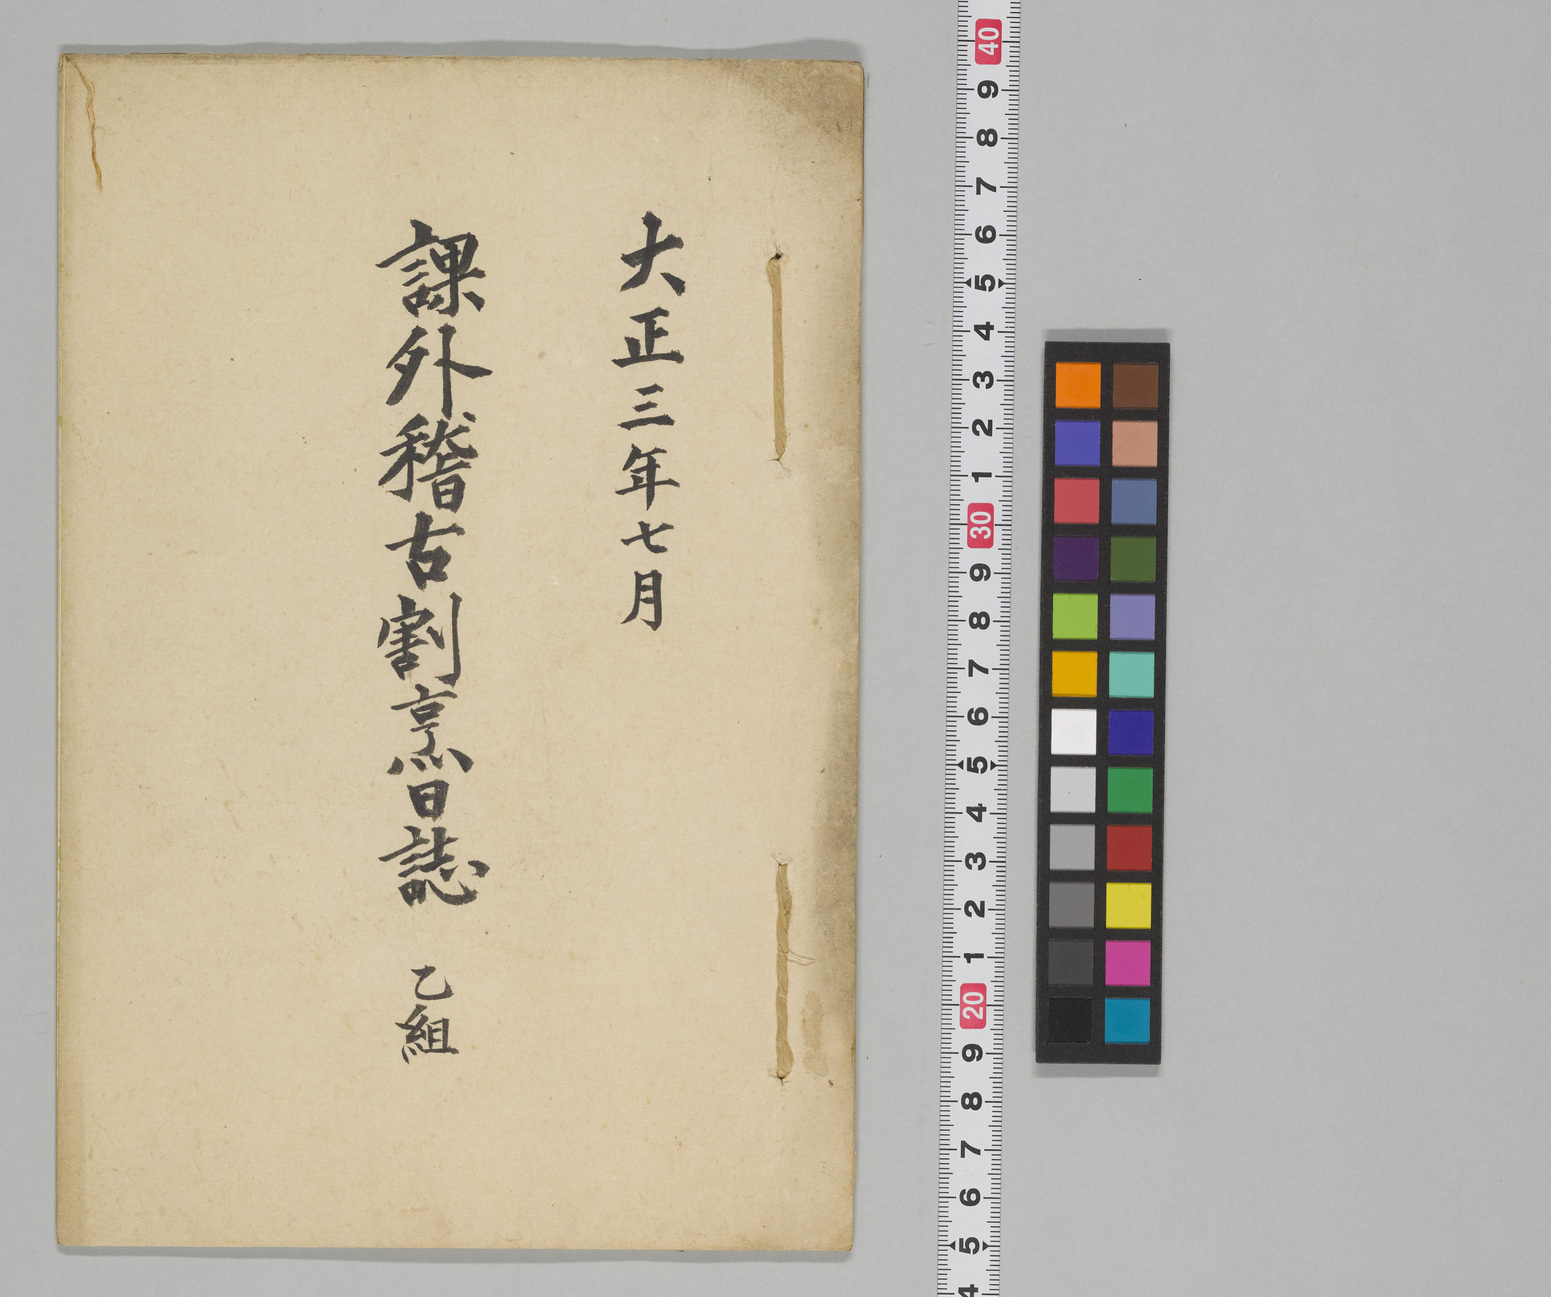 大正三年七月
課外稽古割烹日誌 乙組
40
9
8
7
6
5
4
3
2
1
30
9
8
7
6
5
4
3
2
1
20
9
8
7
6
5
4